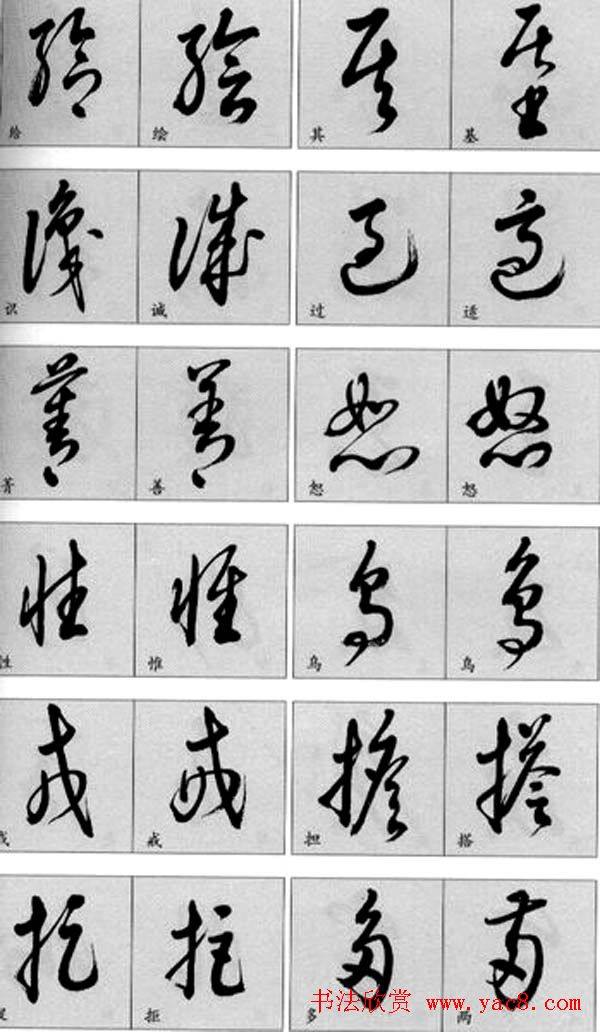 给 绘 其 基
识 诚 过 适
菁 善 恕 怒
性 惟
戒 担 搭
拒 多 两
书法欣赏 www.yac8.com